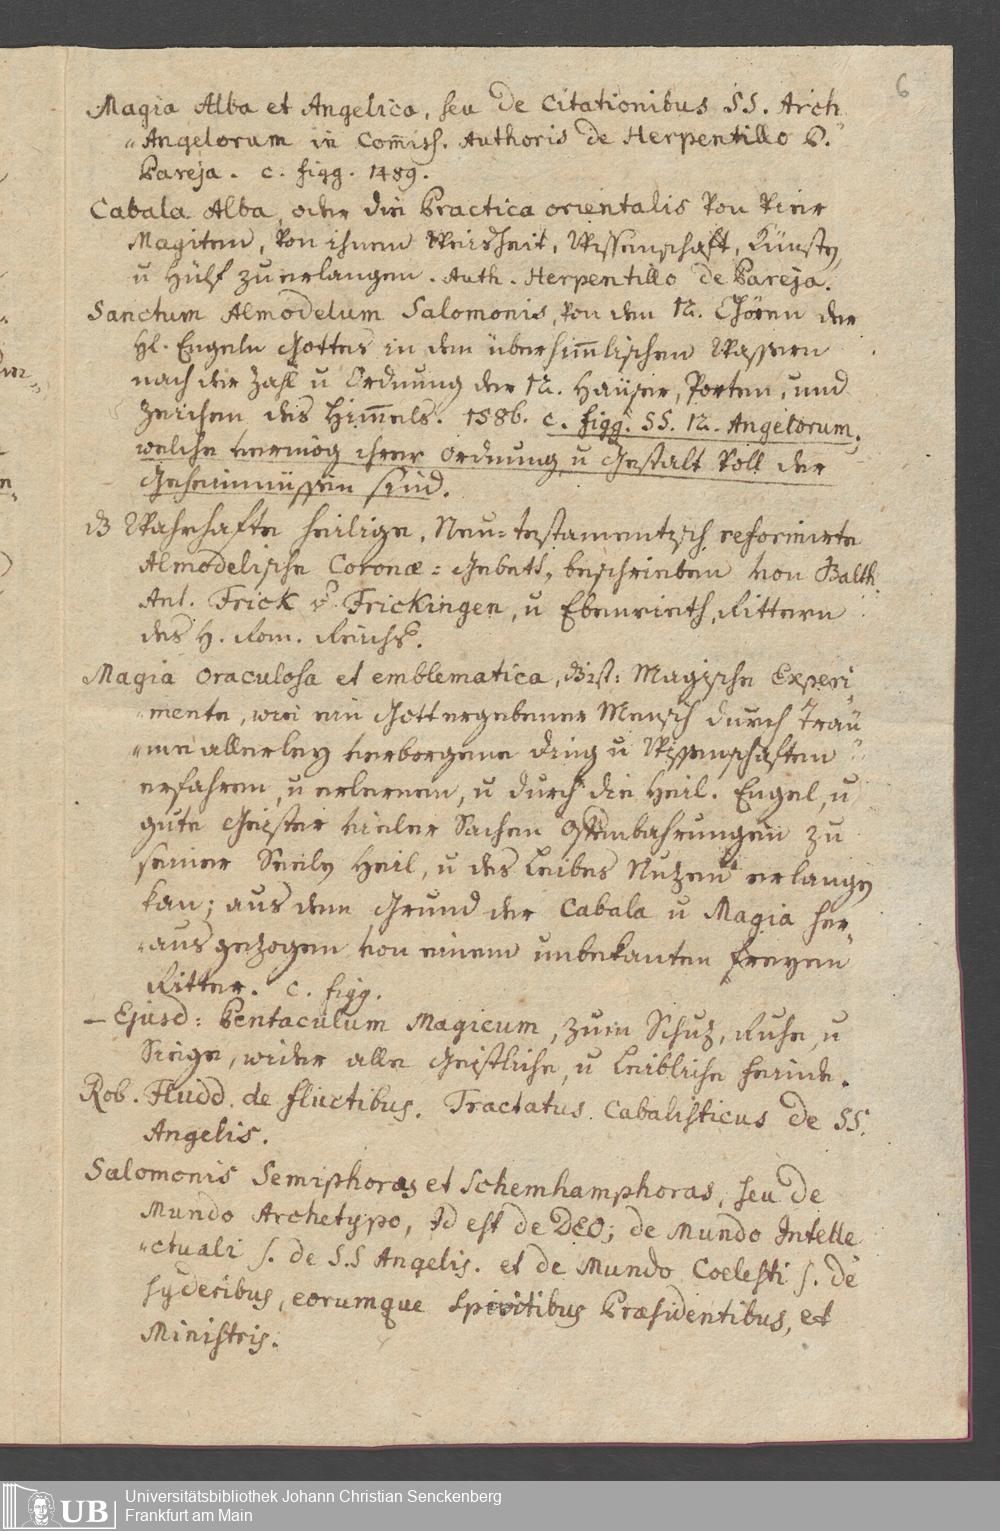 6
Magia Alba et Angelica, seu de Citationibus SS. Arch
„Angelorum in Com̄iss. Authoris de Herpentillo P.
Pareja. c. figg. 1489.
Cabala Alba, oder die Practica orientalis von vier
Magiten, von ihnen Weisheit, Wissenschaft, Künsten,
u Hülf zu erlangen. Auth. Herpentillo de Pareja.
Sanctum Almodelum Salomonis, von den 12. Chören der
Hl. Engeln Gottes in den überhim̄lischen Wassern
nach der Zahl u Ordnung der 12. Haüser, Porten, und
Zeichen des Him̄els. 1586. c. figg. SS. 12. Angelorum,
welche vermög ihrer Ordnung u Gestalt voll der
Geheimnüssen sind.
Wahrhafte heilige, Neu-testamentisch reformirte
Almodelische Coronæ-Gebett, beschrieben von Balth.
Ant. Frick v. Frickingen, u Ebenrieth, Rittern
des H. Rom. Reichs.
Magia Oraculosa et emblematica, dist: Magische Experi
„mente, wie ein Gott ergebener Mensch durch Traü
„me allerley verborgene ding u Wissenschaften
erfahren, u erlernen, u durch die Heil. Engel, u
gute Geister vieler Sachen Offenbahrungen zu
seiner Seelen Heil, u des Leibes Nutzen erlangen
kan; aus dem Grund der Cabala u Magia her„
„ausgezogen von einem unbekanten freyen
Ritter. c. figg.
— Ejusd: Pentaculum Magicum, zum Schutz, Ruhe, u
Siege, wider alle Geistliche, u Leibliche feinde.
Rob. Fludd. de fluctibus. Tractatus Cabalisticus de SS.
Angelis.
Salomonis Semiphoras et Schemhamphoras, seu de
Mundo Archetypo, Id est de DEO; de Mundo Intelle
„ctuali s. de S.S Angelis. et de Mundo Coelesti s. de
syderibus, eorumque Spiritibus Præsidentibus, et
Ministris.
UB
Universitätsbibliothek Johann Christian Senckenberg
Frankfurt am Main